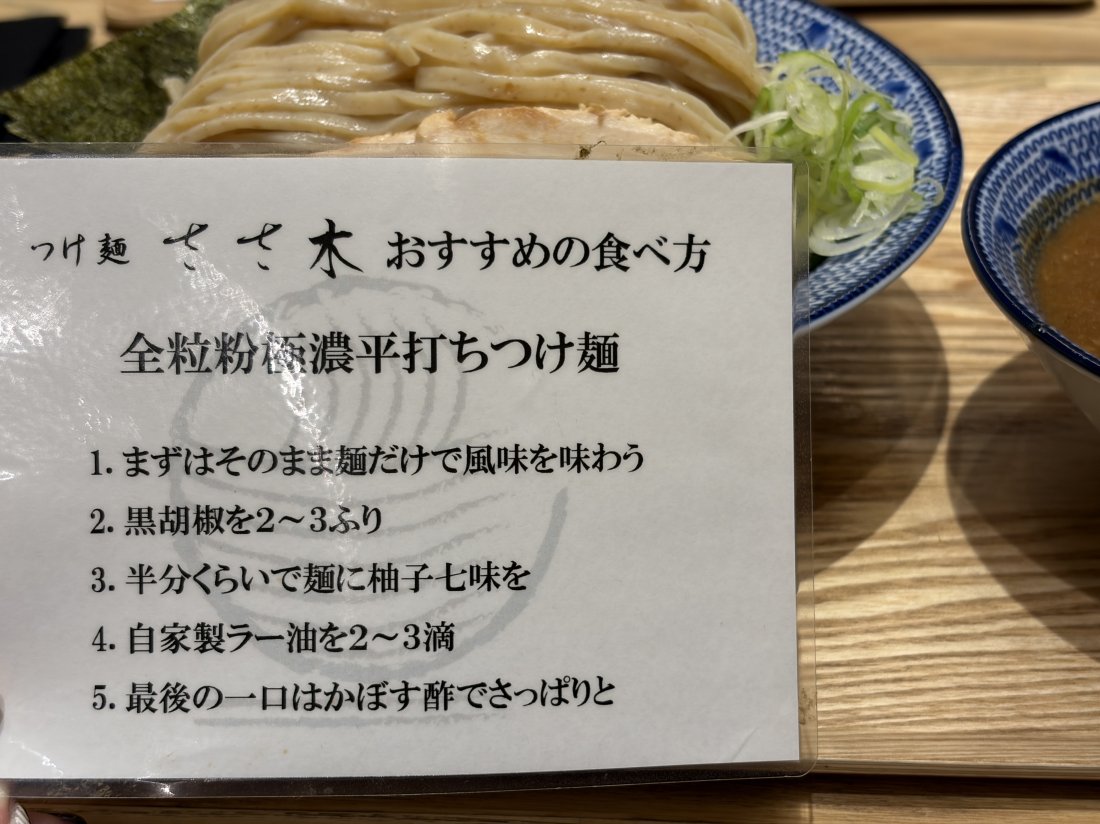 つけ麺 ささ木 おすすめの食べ方
全粒粉極濃平打ちつけ麺
1. まずはそのまま麺だけで風味を味わう
2. 黒胡椒を2～3ふり
3. 半分くらいで麺に柚子七味を
4. 自家製ラー油を2～3滴
5. 最後の一口はかぼす酢でさっぱりと